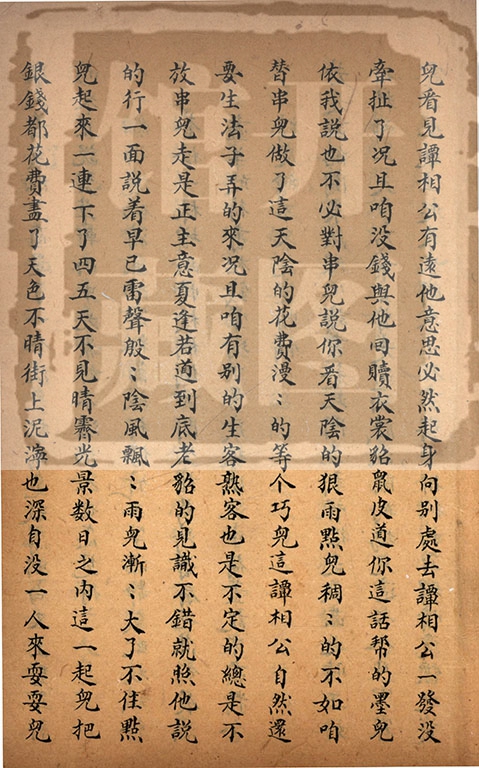 兒看見譚相公有遠他意思必然起身向別處去譚相公一發没
牽扯了况且咱没錢與他回贖衣裳貂鼠皮道你這話帮的墨兒
依我説也不必對串兒説你看天陰的狠雨點兒稠〻的不如咱
替串兒做了這天陰的花費漫〻的等个巧兒這譚相公自然還
要生法子弄的來况且咱有别的生客熟客也是不定的總是不
放串兒走是正主意夏逢若道到底老貂的見識不錯就照他説
的行一面説着早已雷聲殷〻陰風飄〻雨兒漸〻大了不住點
兒起來一連下了四五天不見晴霽光景数日之内這一起兒把
銀錢都花費盡了天色不晴街上泥濘也深自没一人來耍耍兒